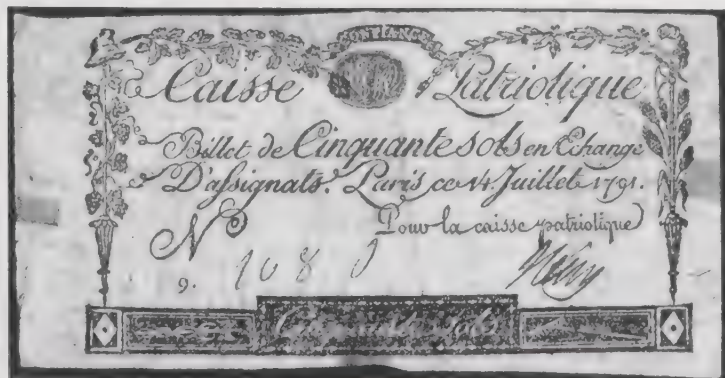 CONFIANCE
Caisse Patriotique
Billet de Cinquante sols en Echange
D'assignats. Paris ce 14 Juillet 1791.
Pour la caisse patriotique
N
9. 108
Cinquante Sols